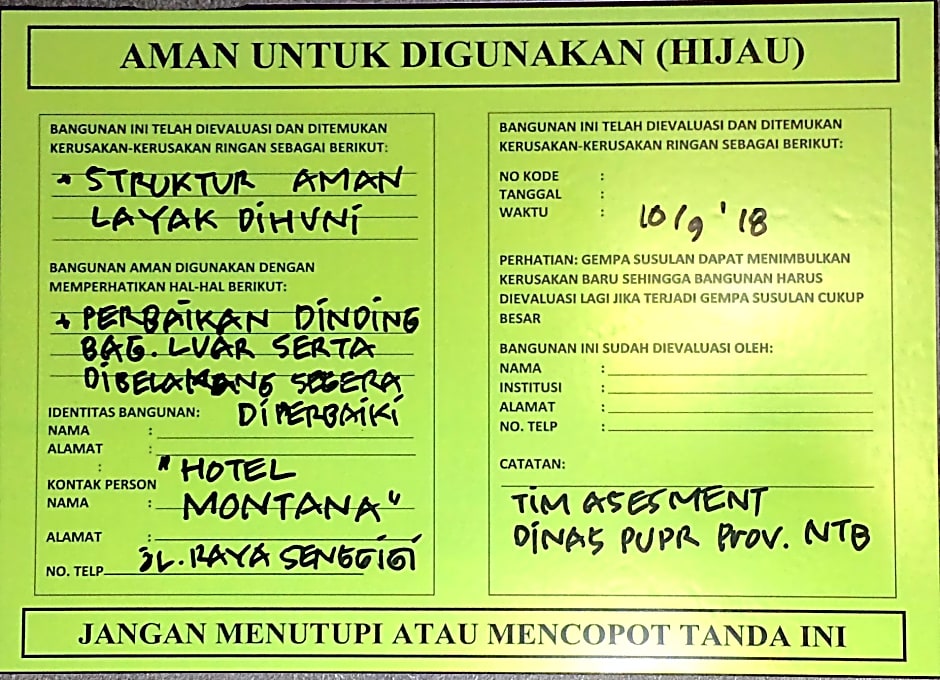 AMAN UNTUK DIGUNAKAN (HIJAU)
BANGUNAN INI TELAH DIEVALUASI DAN DITEMUKAN
KERUSAKAN-KERUSAKAN RINGAN SEBAGAI BERIKUT:
* STRUKTUR AMAN
LAYAK DIHUNI
BANGUNAN AMAN DIGUNAKAN DENGAN
MEMPERHATIKAN HAL-HAL BERIKUT:
+ PERBAIKAN DINDING
BAG. LUAR SERTA
DIBELAKANG SEGERA
DIPERBAIKI
IDENTITAS BANGUNAN:
NAMA :
ALAMAT :
:
"HOTEL
KONTAK PERSON
NAMA : MONTANA"
ALAMAT :
JL. RAYA SENGGIGI
NO. TELP
BANGUNAN INI TELAH DIEVALUASI DAN DITEMUKAN
KERUSAKAN-KERUSAKAN RINGAN SEBAGAI BERIKUT:
NO KODE :
TANGGAL :
WAKTU : 10/9 '18
PERHATIAN: GEMPA SUSULAN DAPAT MENIMBULKAN
KERUSAKAN BARU SEHINGGA BANGUNAN HARUS
DIEVALUASI LAGI JIKA TERJADI GEMPA SUSULAN CUKUP
BESAR
BANGUNAN INI SUDAH DIEVALUASI OLEH:
NAMA :
INSTITUSI :
ALAMAT :
NO. TELP :
CATATAN:
TIM ASESMENT
DINAS PUPR PROV. NTB
JANGAN MENUTUPI ATAU MENCOPOT TANDA INI